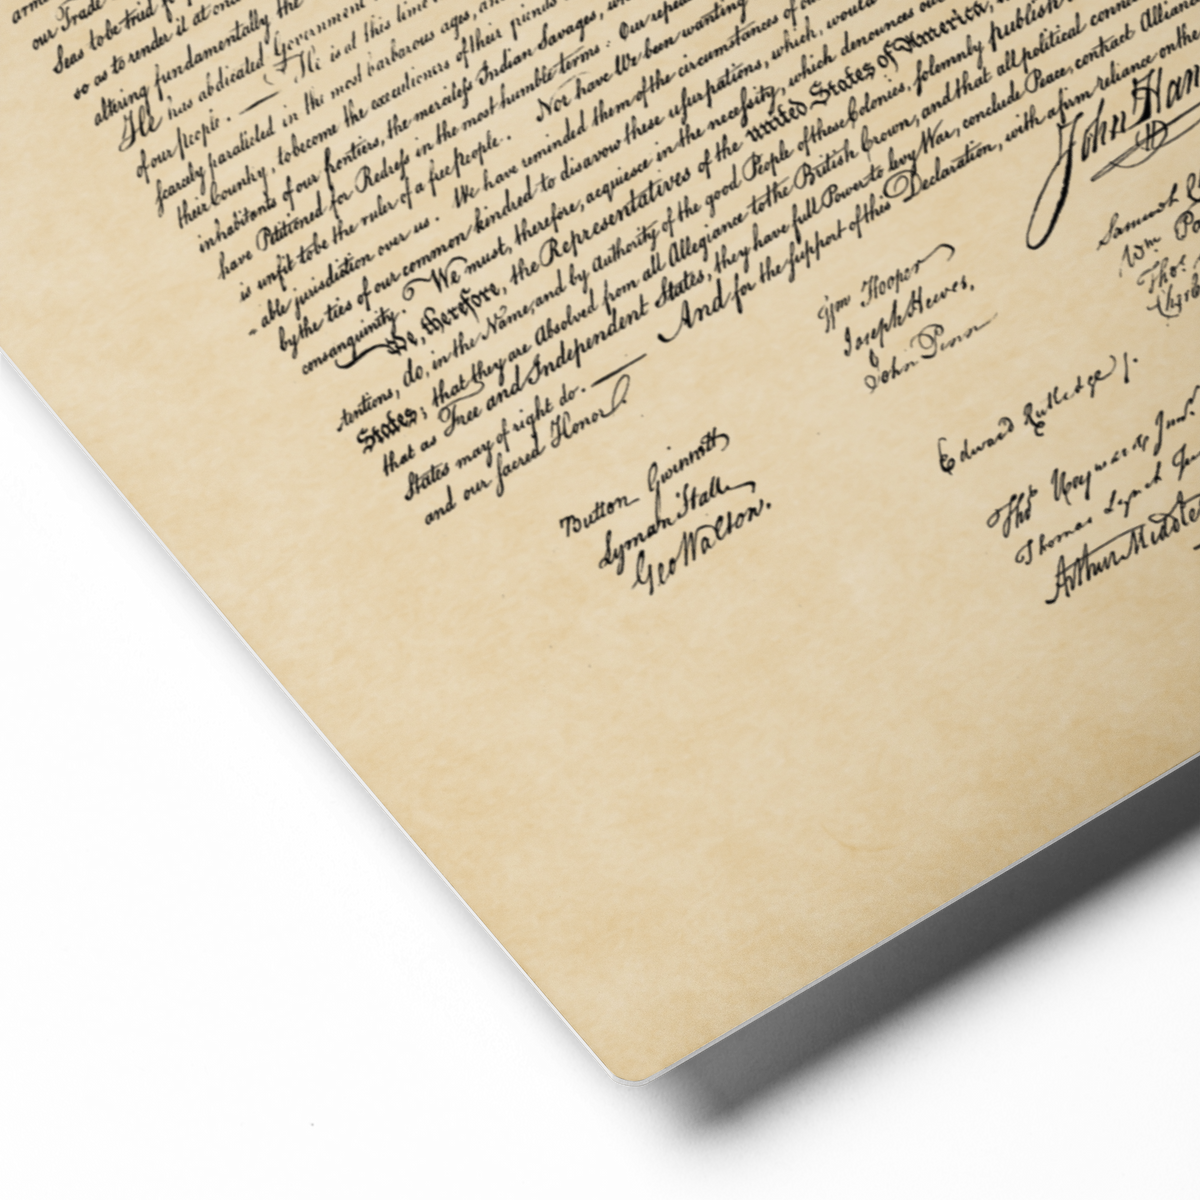 our Trade
Seas to be tried
so as to render it at once
altering fundamentally the
He has abdicated Government
of our people. He is at this time
scarcely paralleled in the most barbarous ages, and
their Country, to become the executioners of their friends
inhabitants of our frontiers, the merciless Indian Savages, wh
have Petitioned for Redress in the most humble terms: Our repea
is unfit to be the ruler of a free people. Nor have We been wanting
able jurisdiction over us. We have reminded them of the circumstances of ou
by the ties of our common kindred to disavow these usurpations, which, would
consanguinity. We must, therefore, acquiesce in the necessity, which denounces our
We, therefore, the Representatives of the united States of America,
tentions, do, in the Name, and by Authority of the good People of these Colonies, solemnly publish
States; that they are Absolved from all Allegiance to the British Crown, and that all political conne
that as Free and Independent States, they have full Power to levy War, conclude Peace, contract Allian
States may of right do. And for the support of this Declaration, with a firm reliance on the
and our sacred Honor.
John Han
Button Gwinnett
Lyman Hall
Geo Walton.
Wm Hooper
Joseph Hewes,
John Penn
Edward Rutledge /.
Thos Heyward Junr.
Thomas Lynch Jun
Arthur Middle
Samuel
Wm. Pa
Thos.
Charle